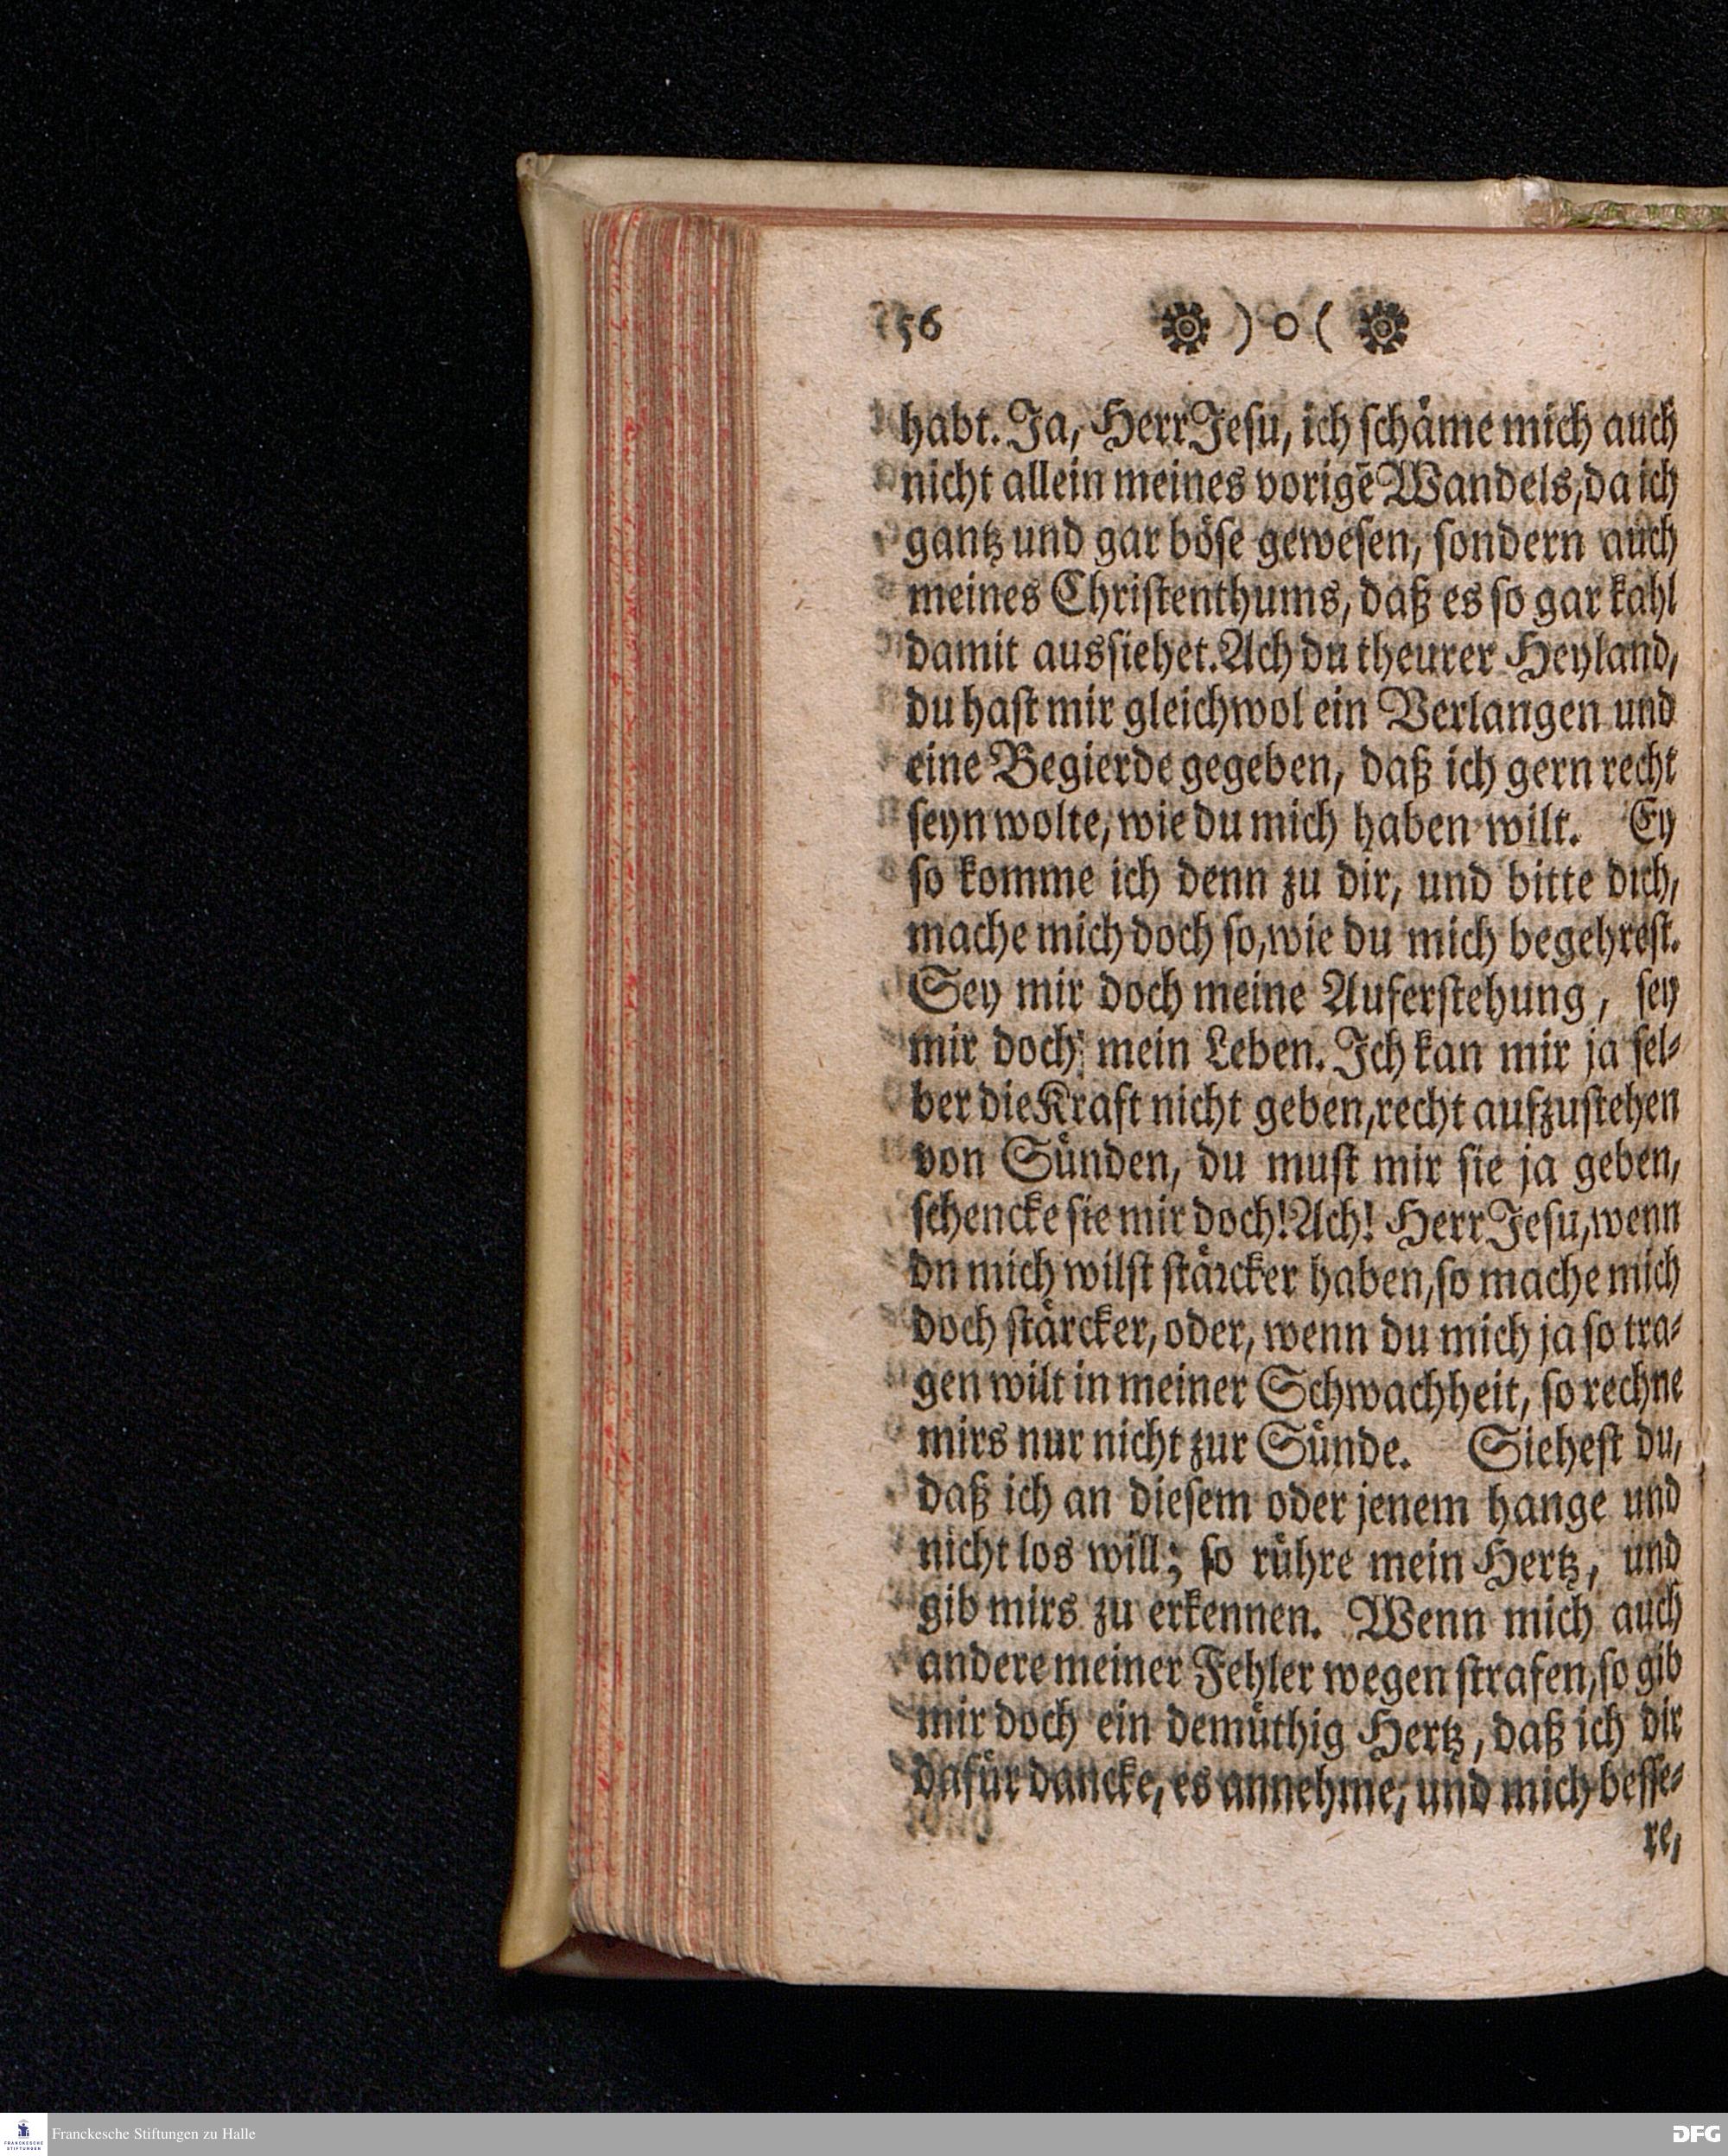 56 ❁ ) o ( ❁
habt. Ja, Herr Jeſu, ich ſchaͤme mich auch
nicht allein meines vorigē Wandels, da ich
gantz und gar boͤſe geweſen, ſondern auch
meines Chriſtenthums, daß es ſo gar kahl
damit ausſiehet. Ach du theurer Heyland,
du haſt mir gleichwol ein Verlangen und
eine Begierde gegeben, daß ich gern recht
ſeyn wolte, wie du mich haben wilt. Ey
ſo komme ich denn zu dir, und bitte dich,
mache mich doch ſo, wie du mich begehreſt.
Sey mir doch meine Auferſtehung, ſey
mir doch mein Leben. Ich kan mir ja ſel⸗
ber die Kraft nicht geben, recht aufzuſtehen
von Suͤnden, du muſt mir ſie ja geben,
ſchencke ſie mir doch! Ach! Herr Jeſu, wenn
dn mich wilſt ſtaͤrcker haben, ſo mache mich
doch ſtaͤrcker, oder, wenn du mich ja ſo tra⸗
gen wilt in meiner Schwachheit, ſo rechne
mirs nur nicht zur Suͤnde. Sieheſt du,
daß ich an dieſem oder jenem hange und
nicht los will; ſo ruͤhre mein Hertz, und
gib mirs zu erkennen. Wenn mich auch
andere meiner Fehler wegen ſtrafen, ſo gib
mir doch ein demuͤthig Hertz, daß ich dir
dafuͤr dancke, es annehme, und mich beſſe⸗
re,
Franckesche Stiftungen zu Halle
FRANCKESCHE
STIFTUNGEN
DFG